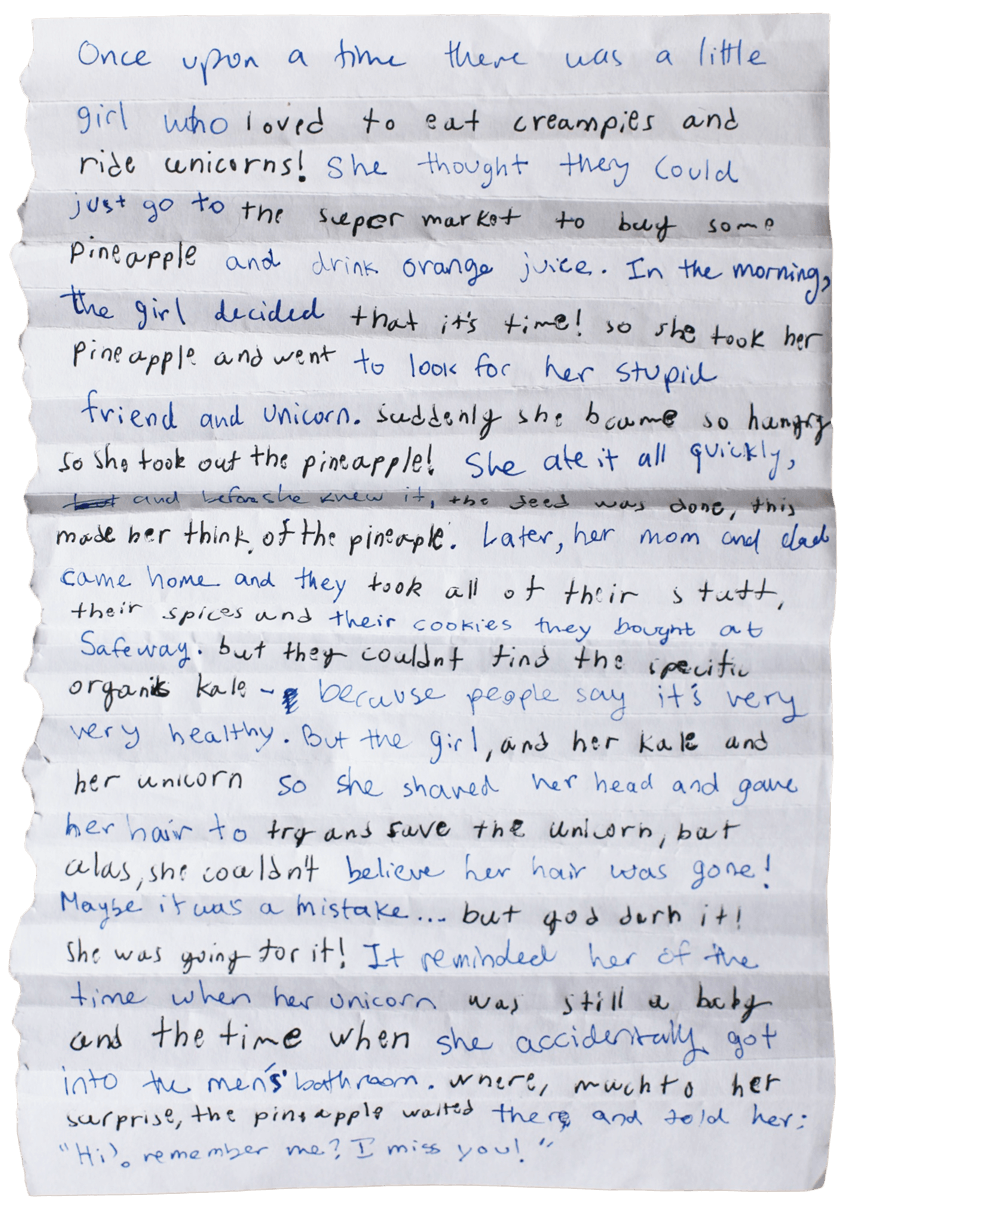 Once upon a time there was a little
girl who loved to eat creampies and
ride unicorns! She thought they could
just go to the super market to buy some
pineapple and drink orange juice. In the morning,
the girl decided that it's time! so she took her
pineapple and went to look for her stupid
friend and unicorn. suddenly she bcame so hangry
so she took out the pineapple! She ate it all quickly,
and before she knew it, the deed was done, this
made her think of the pineaple. Later, her mom and dad
came home and they took all of their stuff,
their spices and their cookies they bought at
Safeway. but they couldnt find the specific
organik kale - because people say it's very
very healthy. But the girl, and her kale and
her unicorn so she shaved her head and gave
her hair to try and save the unicorn, but
alas, she couldn't believe her hair was gone!
Maybe it was a mistake... but god durn it!
she was going for it! It reminded her of the
time when her unicorn was still a baby
and the time when she accidentally got
into the men's bathroom. where, much to her
surprise, the pineapple waited there and told her:
"Hi!, remember me? I miss you!"